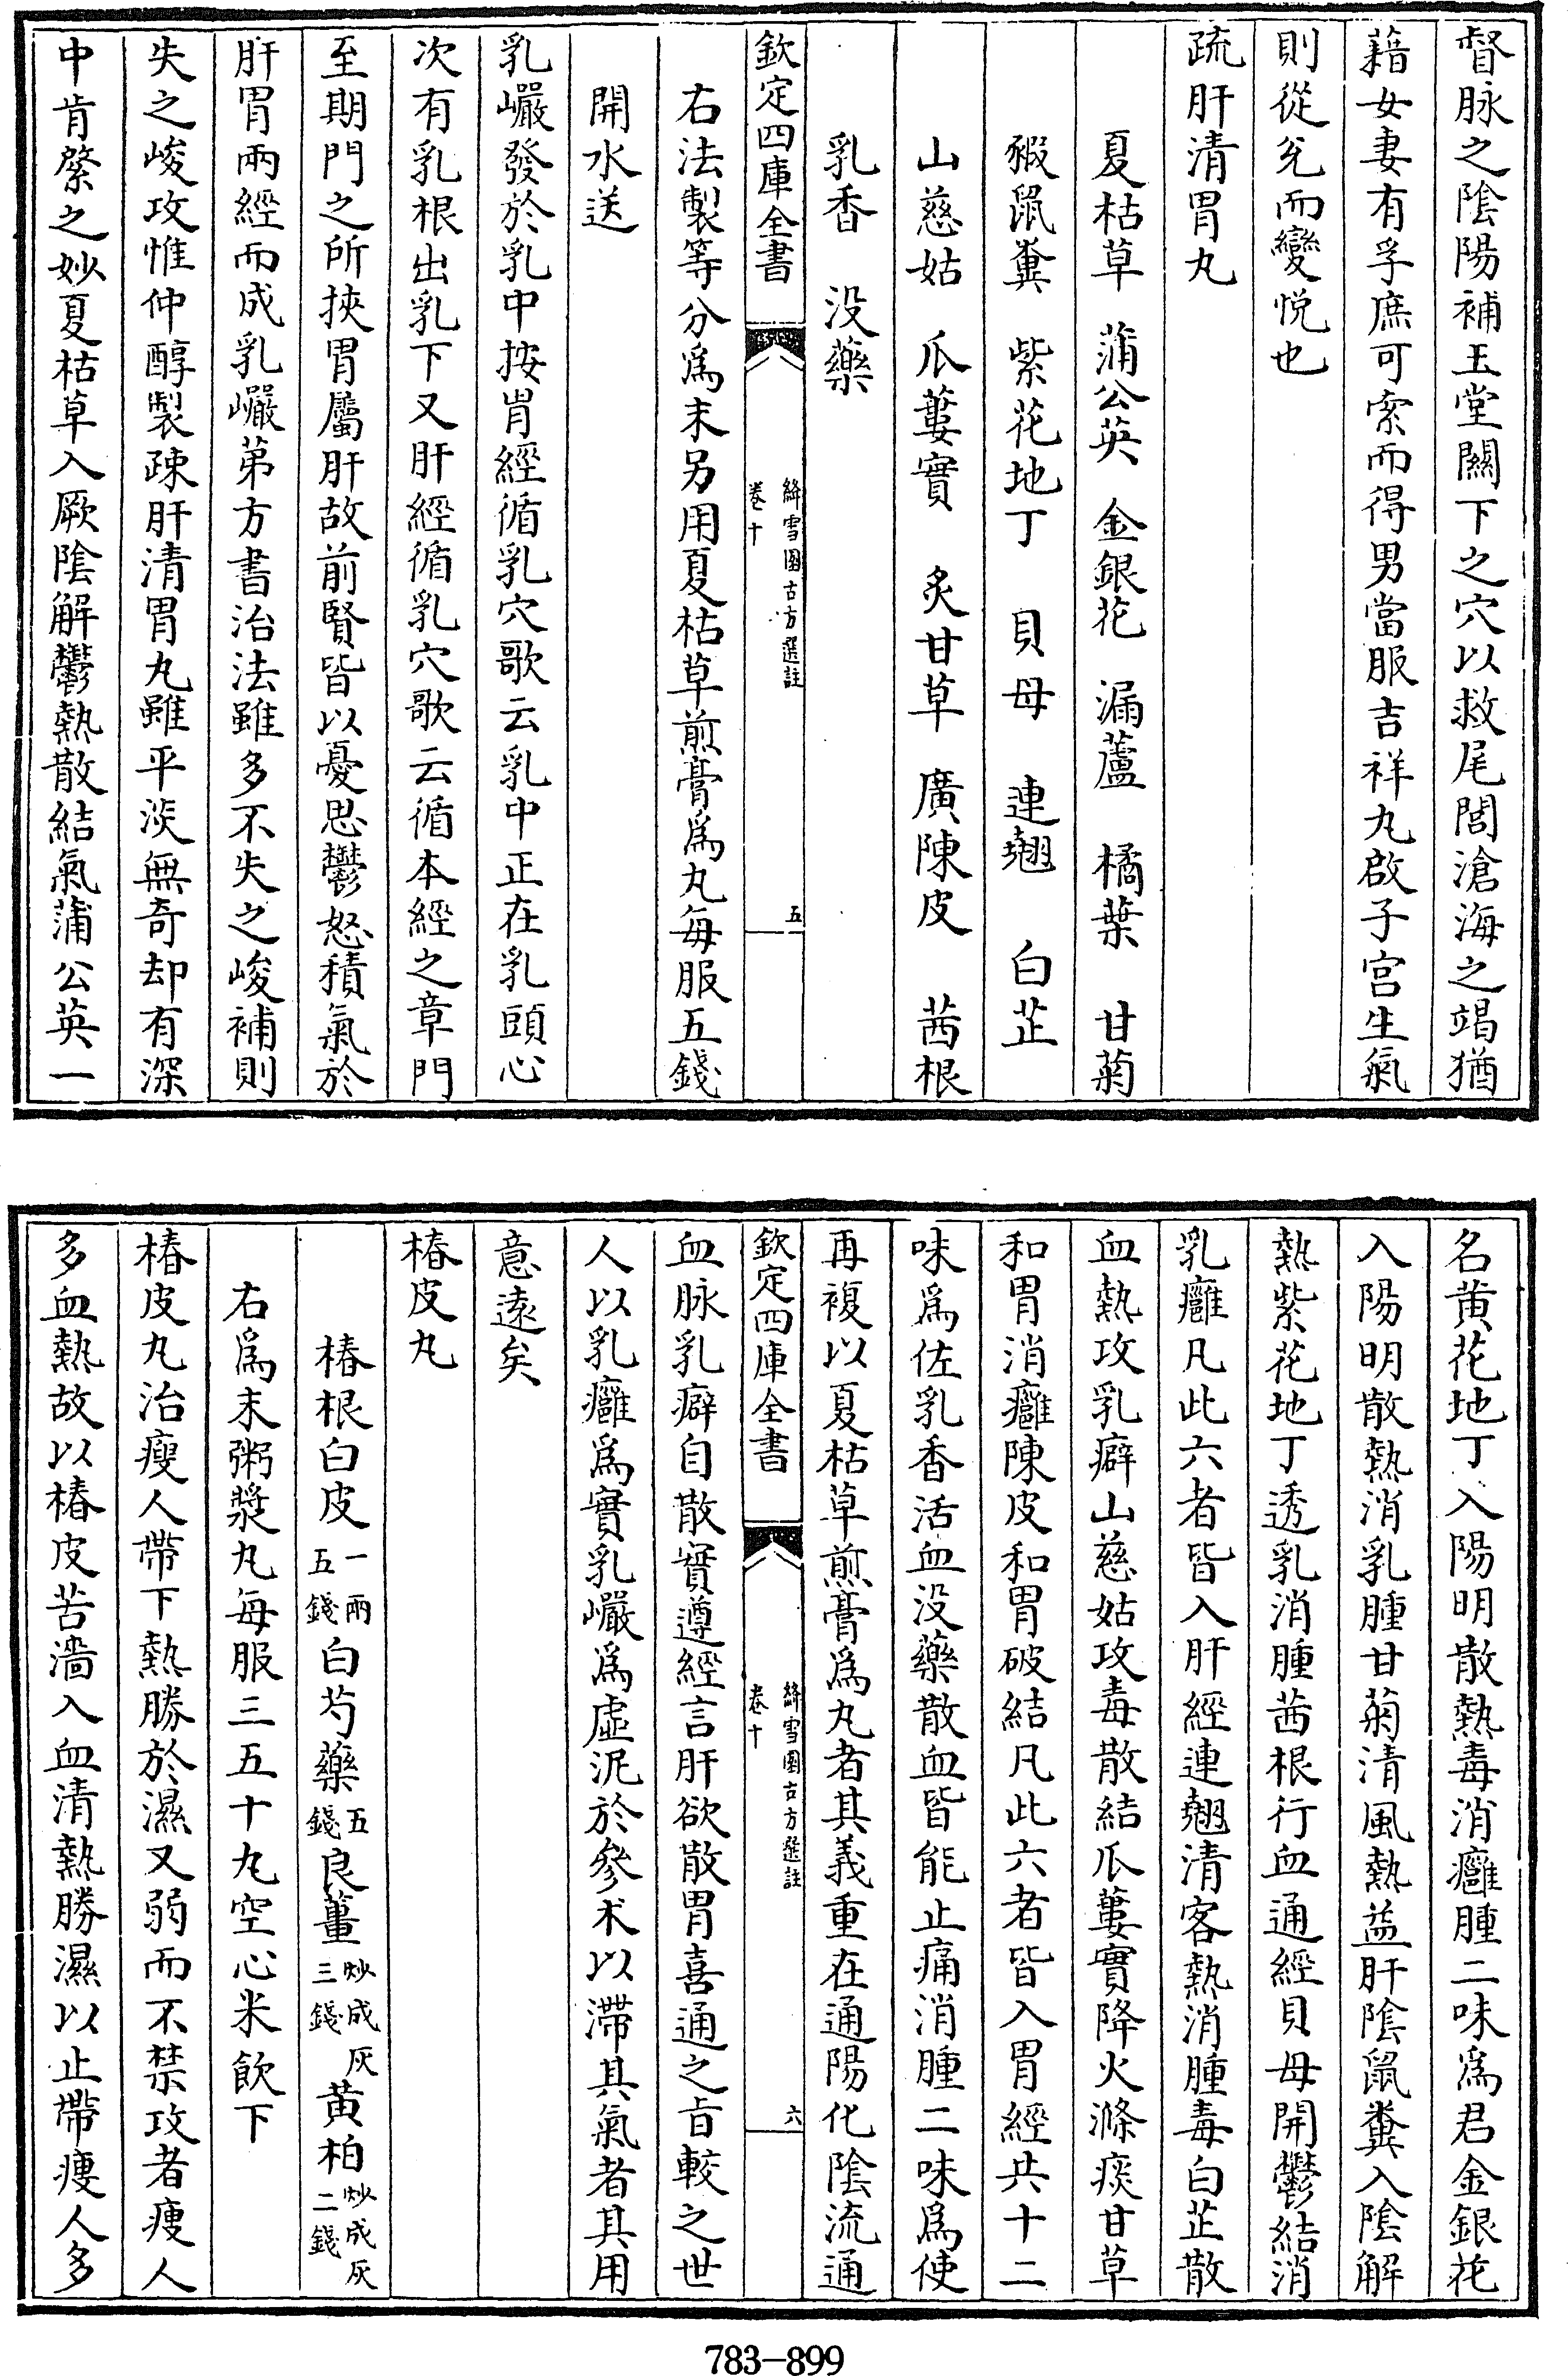 督脉之隂陽補玉堂闗下之穴以救尾閭滄海之竭猶
藉女妻有孚庶可索而得男當服吉祥丸啟子宮生氣
則從兊而變悦也
疏肝清胃丸
夏枯草　蒲公英　金銀花　漏蘆　橘葉　甘菊
豭鼠糞　紫花地丁　貝母　連翹　白芷
山慈姑　瓜蔞實　炙甘草　廣陳皮　茜根
乳香　没藥
欽定四庫全書
絳雪園古方選註
卷十
五
右法製等分爲末另用夏枯草煎膏爲丸每服五錢
開水送
乳巖發於乳中按胃經循乳穴歌云乳中正在乳頭心
次有乳根出乳下又肝經循乳穴歌云循本經之章門
至期門之所挾胃屬肝故前賢皆以憂思鬱怒積氣於
肝胃兩經而成乳巖第方書治法雖多不失之峻補則
失之峻攻惟仲醇製疎肝清胃丸雖平淡無奇却有深
中肯綮之妙夏枯草入厥隂解鬱熱散結氣蒲公英一
名黄花地丁入陽明散熱毒消癰腫二味爲君金銀花
入陽明散熱消乳腫甘菊清風熱益肝隂鼠糞入隂解
熱紫花地丁透乳消腫茜根行血通經貝母開鬱結消
乳癰凡此六者皆入肝經連翹清客熱消腫毒白芷散
血熱攻乳癖山慈姑攻毒散結瓜蔞實降火滌痰甘草
和胃消癰陳皮和胃破結凡此六者皆入胃經共十二
味爲佐乳香活血没藥散血皆能止痛消腫二味爲使
再複以夏枯草煎膏爲丸者其義重在通陽化隂流通
欽定四庫全書
絳雪園古方選註
卷十
六
血脉乳癖自散實遵經言肝欲散胃喜通之旨較之世
人以乳癰爲實乳巖爲虚泥於參术以滯其氣者其用
意遠矣
椿皮丸
椿根白皮一兩五錢白芍藥五錢良薑炒成灰三錢黄柏炒成灰二錢
右爲末粥漿丸每服三五十丸空心米飲下
椿皮丸治瘦人帶下熱勝於濕又弱而不禁攻者瘦人
多血熱故以椿皮苦濇入血清熱勝濕以止帶瘦人多
783-899